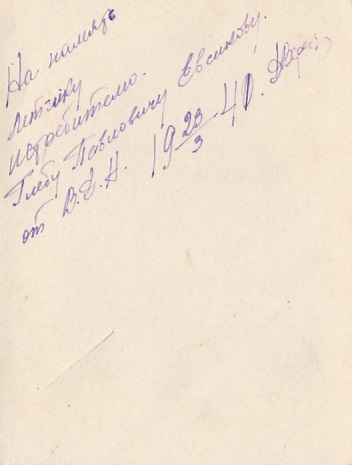 На память
летчику
истребителю.
Глебу Павловичу Евсикову.
от В.Е.Н. 19 23/3 40.